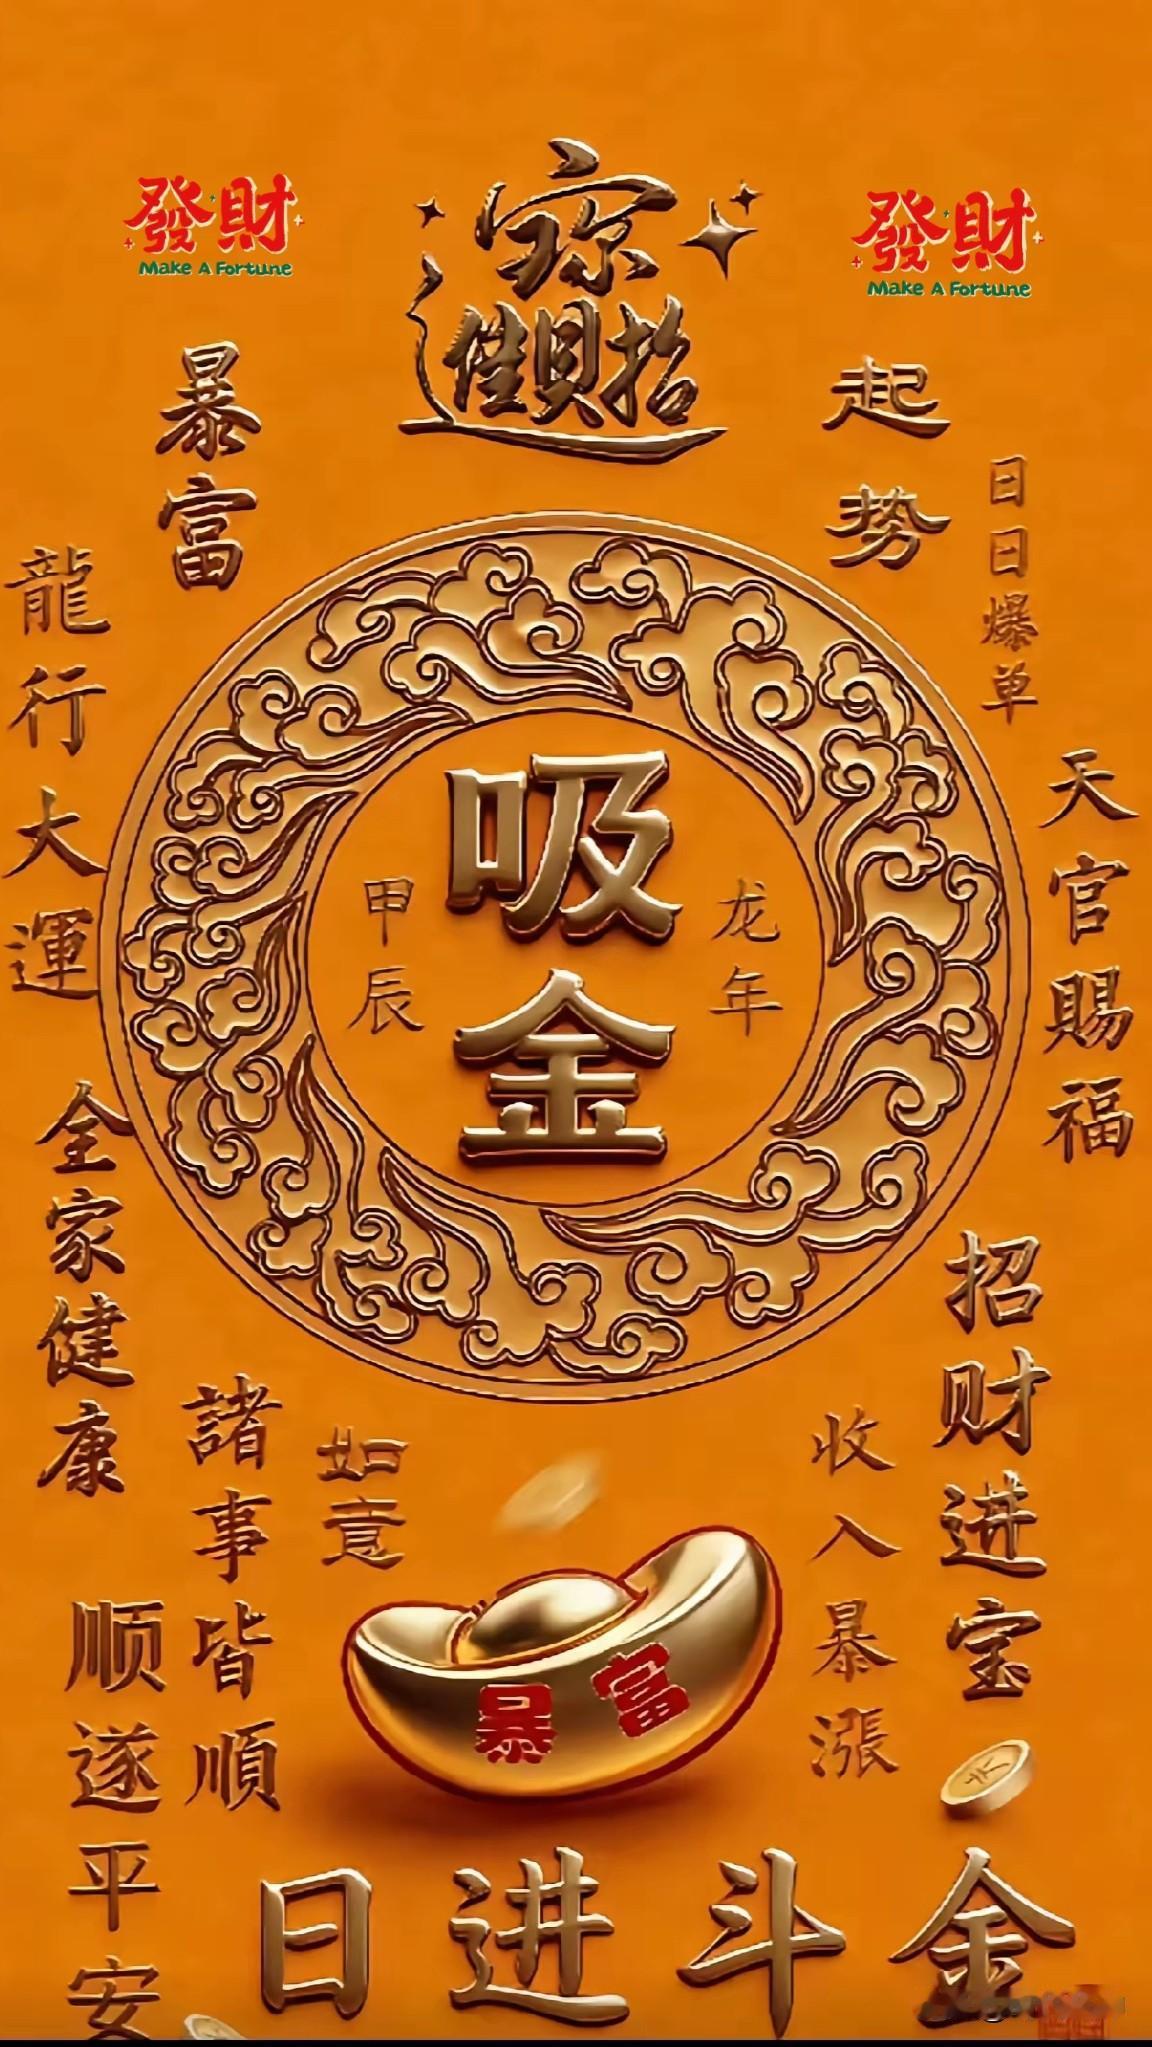 發財
Make A Fortune
發財
Make A Fortune
招財進寶
暴富
起势
日日爆单
龍行大運
天官賜福
吸金
甲辰
龙年
全家健康
招财进宝
諸事皆順
如意
收入暴漲
顺遂平安
暴富
日进斗金